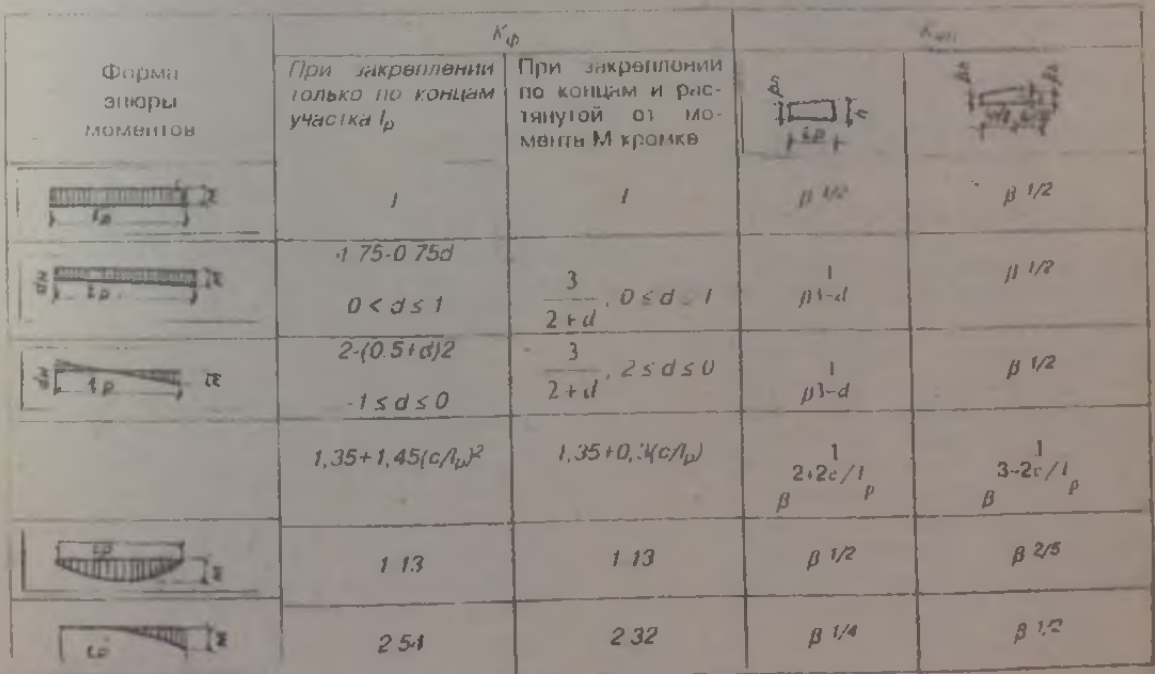 Kф
Kжм
Форма
эпюры
моментов
При закреплении
только по концам
участка lр
При закреплении
по концам и рас-
тянутой от мо-
мента М кромке
βh
h
lр
βh
βh
М
lр
1
1
β 1/2
β 1/2
dм
lр
М
1 75-0 75d
0 < d ≤ 1
3
2+d
, 0 ≤ d ≤ 1
1
β3-d
β 1/2
dм
lр
М
2-(0.5+d)2
-1 ≤ d ≤ 0
3
2+d
, 2 ≤ d ≤ 0
1
β3-d
β 1/2
1,35+1,45(c/lр)2
1,35+0,3(c/lр)
1
2+2c/lр
β
1
3-2c/lр
β
lр
М
1 13
1 13
β 1/2
β 2/5
lр
М
2 54
2 32
β 1/4
β 1/2